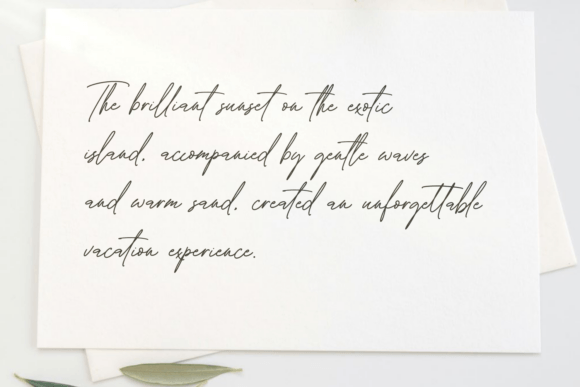 The brilliant sunset on the exotic
island, accompanied by gentle waves
and warm sand, created an unforgettable
vacation experience.